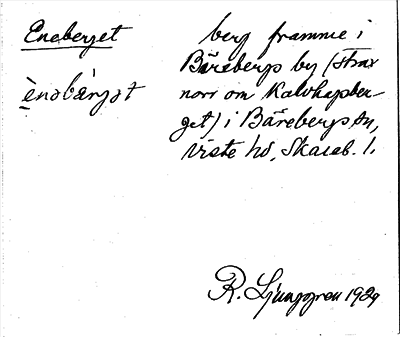 Eneberget
ènəbærjət
berg framme i
Bärebergs by (strax
norr om Kalvhagsber-
get) i Bärebergs sn,
Viste hd, Skarab. l.
R. Ljunggren 1929